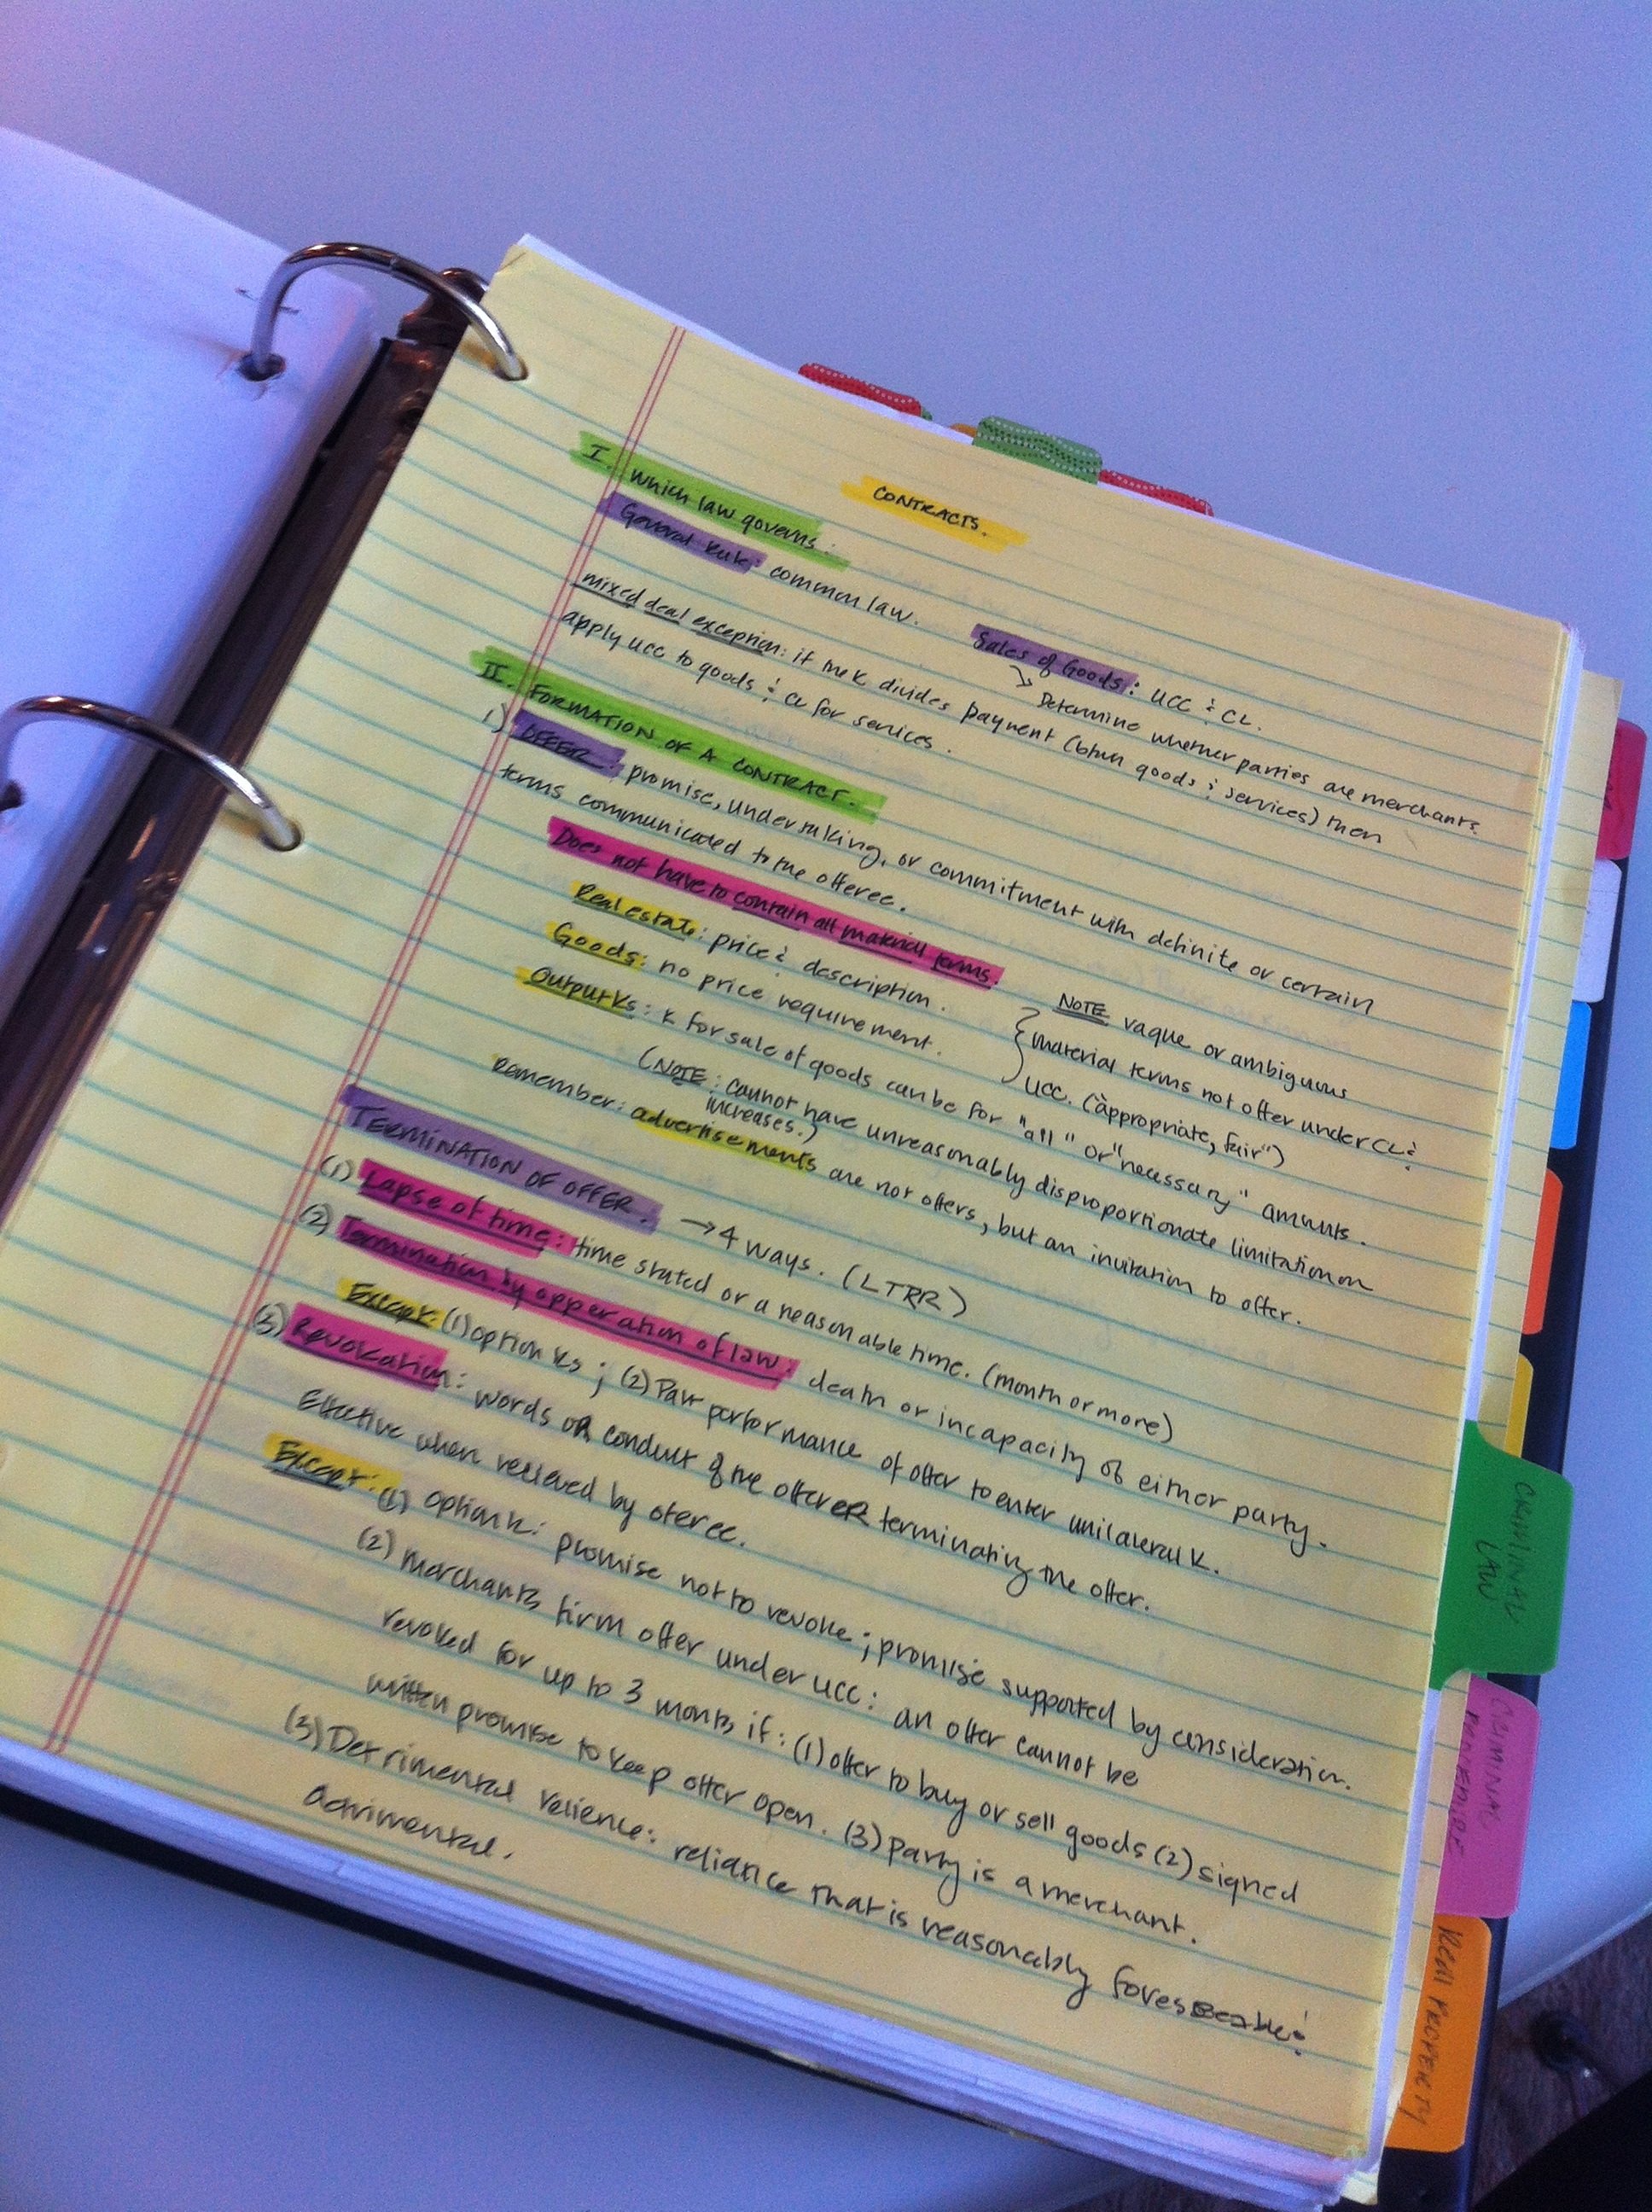 CONTRACTS.
I. Which law governs:
General Rule: common law.
Sales of Goods: UCC & CL.
↘ Determine whether parties are merchants.
mixed deal exception: if the K divides payment (btwn goods & services) then
apply UCC to goods & CL for services.
II. FORMATION OF A CONTRACT.
1) OFFER: promise, undertaking, or commitment with definite or certain
terms communicated to the offeree.
Does not have to contain all material terms.
Real estate: price & description.
Goods: no price requirement.
NOTE vague or ambiguous
material terms not offer under CL &
UCC. ("appropriate, fair")
Output Ks: K for sale of goods can be for "all" or "necessary" amounts.
(NOTE: cannot have unreasonably disproportionate limitation on
increases.)
Remember: advertisements are not offers, but an invitation to offer.
TERMINATION OF OFFER. → 4 ways. (LTRR)
(1) Lapse of time: time stated or a reasonable time. (month or more)
(2) Termination by opperation of law: death or incapacity of either party.
Except: (1) option Ks; (2) Part performance of offer to enter unilateral K.
(3) Revokation: words OR conduct of the offerER terminating the offer.
Effective when recieved by oferee.
Except: (1) Option K: promise not to revoke; promise supported by consideration.
(2) Merchants firm offer under UCC: an offer cannot be
revoked for up to 3 months if: (1) offer to buy or sell goods (2) signed
written promise to keep offer open. (3) party is a merchant.
(3) Detrimental relience: reliance that is reasonably foreseeable &
detrimental.
CRIMINAL
LAW
CRIMINAL
PROCEDURE
REAL PROPERTY